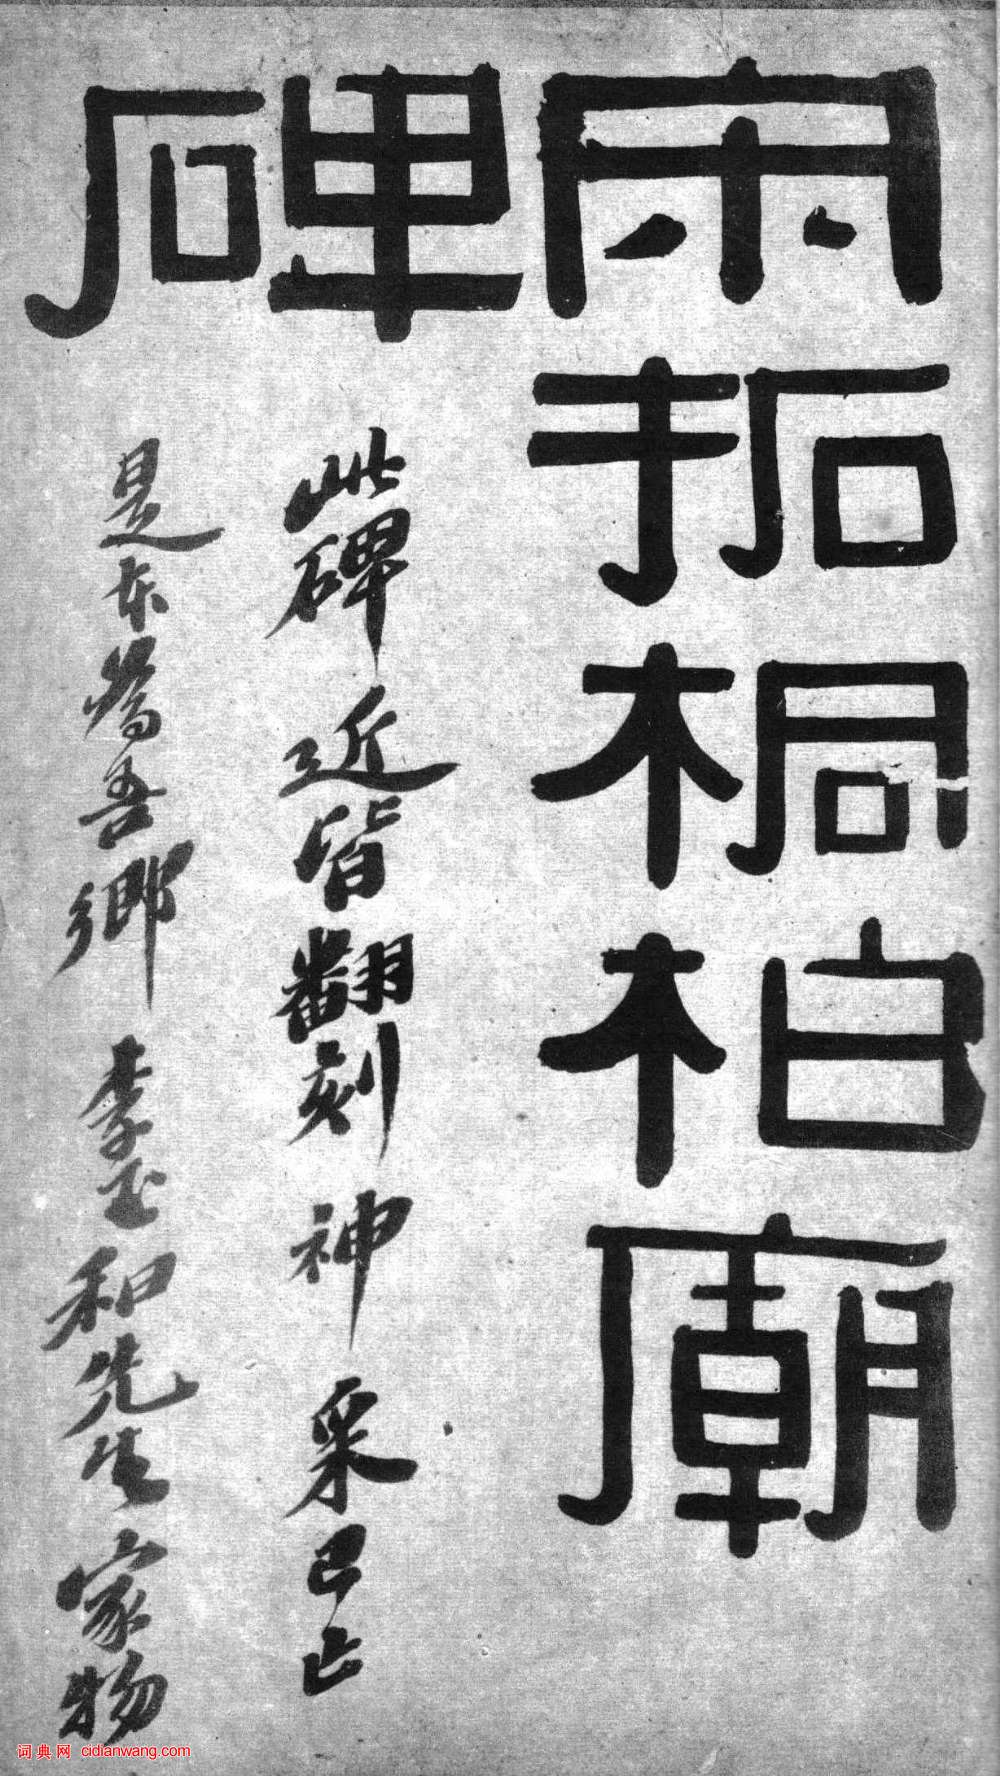 宋拓桐柏廟
碑
此碑近皆翻刻神采已亡
是本為吾鄉李玉和先生家物
词典网 cidianwang.com